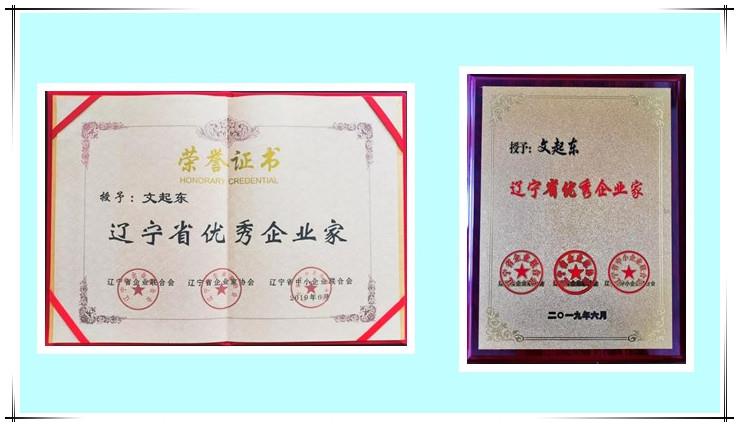 荣誉证书
HONORARY CREDENTIAL
授予：文起东
辽宁省优秀企业家
辽宁省企业联合会 辽宁省企业家协会 辽宁省中小企业联合会
2019年6月
授予：文起东
辽宁省优秀企业家
二〇一九年六月